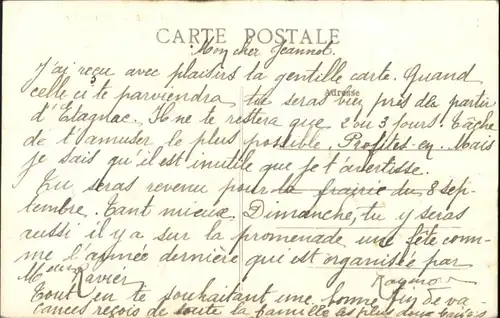 CARTE POSTALE
Mon cher Jeannot.
J'ai reçu avec plaisirs ta gentille carte. Quand
Adresse
celle ci te parviendra tu seras bien près de partir
d'Etagnac. Il ne te restera que 2 ou 3 jours. Tâche
de t'amuser le plus possible. Profites-en. Mais
je sais qu'il est inutile que je t'avertisse.
Tu seras revenu pour la frairie du 8 sep-
tembre. Tant mieux. Dimanche, tu y seras
aussi il y a sur la promenade une fête com-
me l'année dernière qui est organisée par
Xavier
Tout en te souhaitant une bonne fin de va-
cances reçois de toute la famille les plus doux baisers